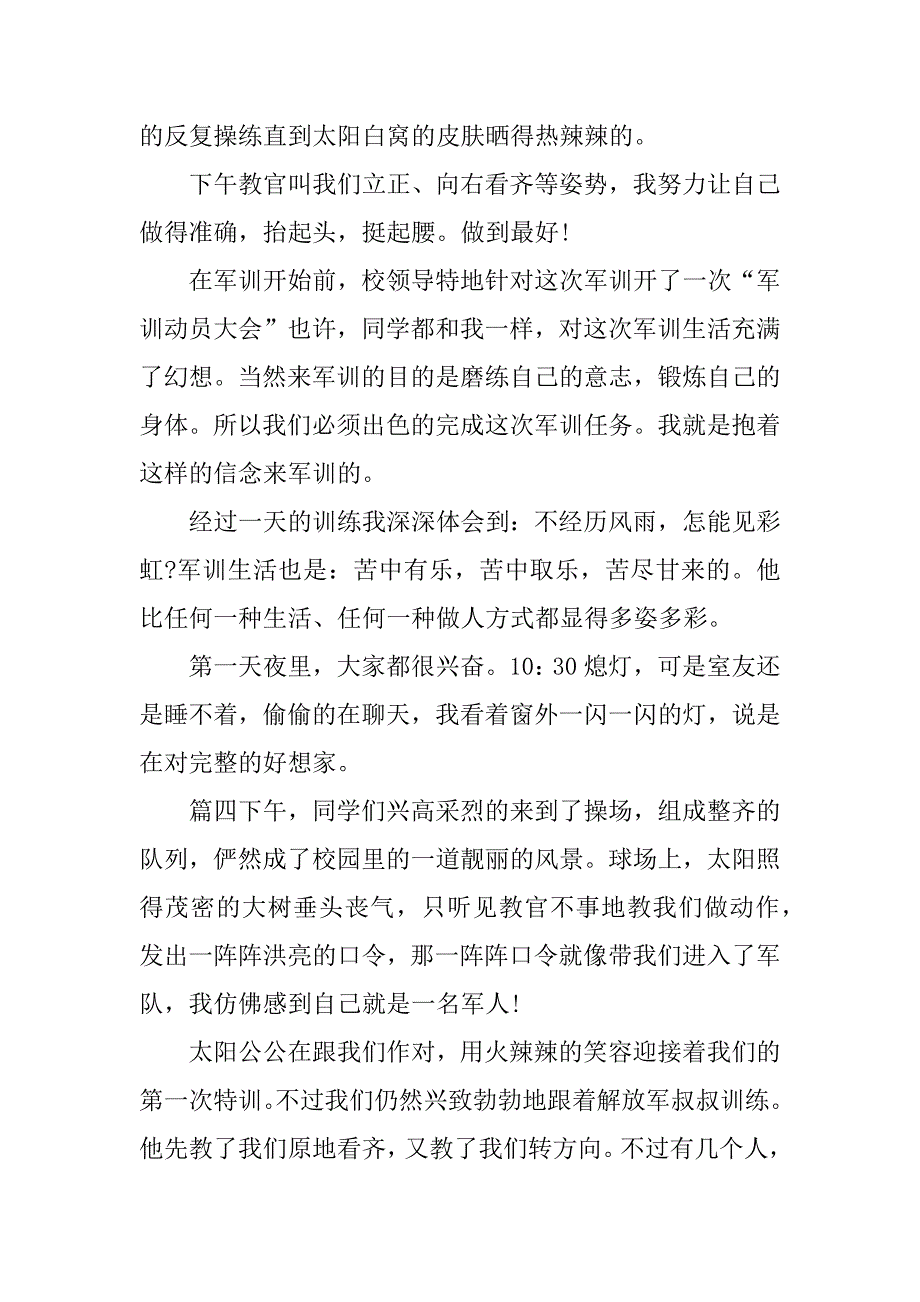 的反复操练直到太阳白窝的皮肤晒得热辣辣的。
下午教官叫我们立正、向右看齐等姿势，我努力让自己
做得准确，抬起头，挺起腰。做到最好!
在军训开始前，校领导特地针对这次军训开了一次“军
训动员大会”也许，同学都和我一样，对这次军训生活充满
了幻想。当然来军训的目的是磨练自己的意志，锻炼自己的
身体。所以我们必须出色的完成这次军训任务。我就是抱着
这样的信念来军训的。
经过一天的训练我深深体会到：不经历风雨，怎能见彩
虹?军训生活也是：苦中有乐，苦中取乐，苦尽甘来的。他
比任何一种生活、任何一种做人方式都显得多姿多彩。
第一天夜里，大家都很兴奋。10：30 熄灯，可是室友还
是睡不着，偷偷的在聊天，我看着窗外一闪一闪的灯，说是
在对完整的好想家。
篇四下午，同学们兴高采烈的来到了操场，组成整齐的
队列，俨然成了校园里的一道靓丽的风景。球场上，太阳照
得茂密的大树垂头丧气，只听见教官不事地教我们做动作，
发出一阵阵洪亮的口令，那一阵阵口令就像带我们进入了军
队，我仿佛感到自己就是一名军人!
太阳公公在跟我们作对，用火辣辣的笑容迎接着我们的
第一次特训。不过我们仍然兴致勃勃地跟着解放军叔叔训练。
他先教了我们原地看齐，又教了我们转方向。不过有几个人，